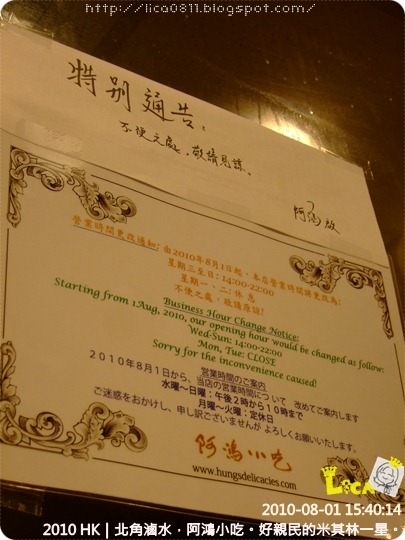 http://lica0811.blogspot.com/
特别通告:
不便之處,敬請見諒。
阿鴻 啟
營業時間更改通知: 由2010年8月1日起,本店營業時間將更改為:
星期三至日: 14:00-22:00
星期一、二: 休 息
不便之處,敬請原諒!
Business Hour Change Notice:
Starting from 1Aug, 2010, our opening hour would be changed as follow:
Wed-Sun: 14:00-22:00
Mon, Tue: CLOSE
Sorry for the inconvenience caused!
営業時間のご案内
2010年8月1日から、当店の営業時間について 改めてご案内します
水曜~日曜:午後2時から10時まで
月曜~火曜:定休日
ご迷惑をおかけし、申し訳ございませんが よろしくお願いいたします。
阿鴻小吃
www.hungsdelicacies.com
LiCA
2010-08-01 15:40:14
2010 HK | 北角滷水,阿鴻小吃。好親民的米其林一星。